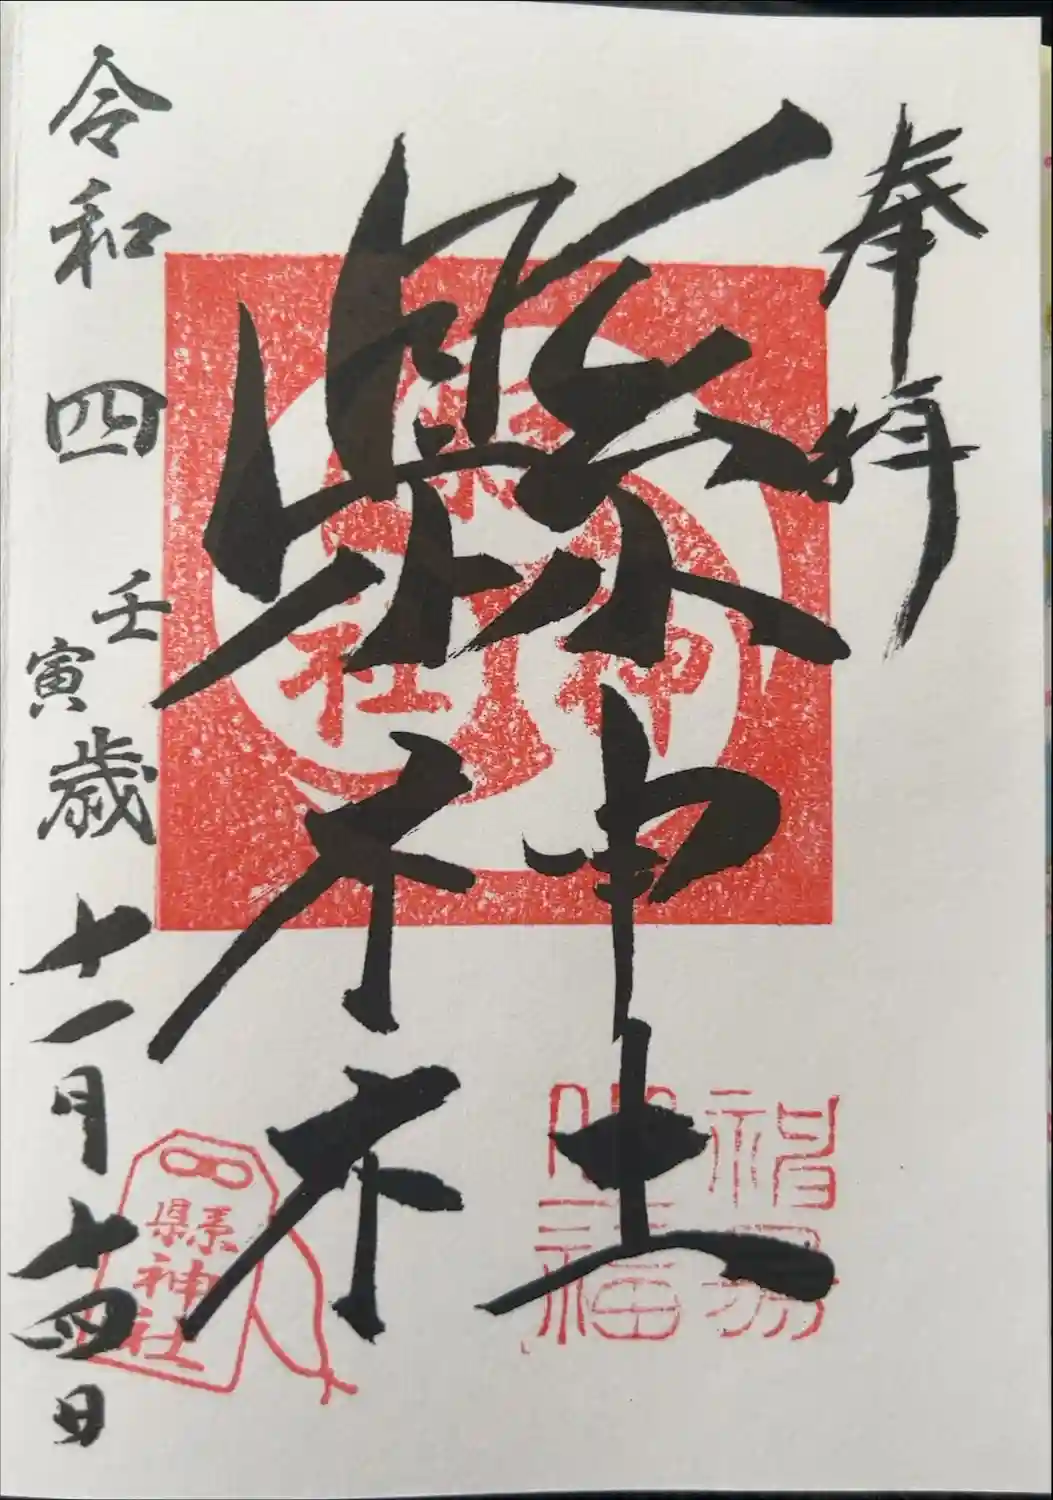 奉拝
縣神社
令和四壬寅歳十一月十四日
縣神社
縣神社